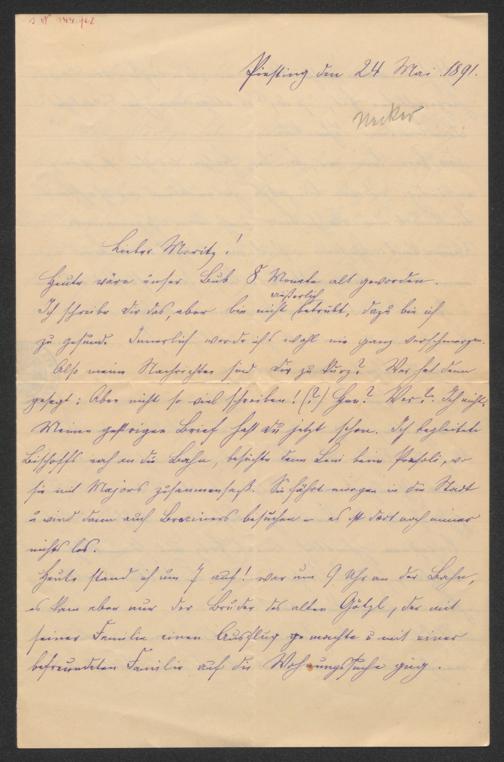 Piesting den 24 Mai 1891.
Necker
Lieber Moritz!
Heute wäre unser Bub 8 Monate alt geworden.
Ich schreibe Dir das, aber bin äußerlich nicht betrübt, dazu bin ich
zu gesund. Innerlich werde ich's wohl nie ganz verschmerzen.
Also meine Nachrichten sind Dir zu kurz? Wer hat denn
gesagt: Aber nicht so viel schreiben! (?) Herr? Wer? Ich nicht.
Meinen gestrigen Brief hast Du jetzt schon. Ich begleitete
Bischoffs noch an die Bahn, besuchte dann Leni beim, wo
sie mit Majors zusammensaß. Sie fährt morgen in die Stadt
u wird dann auch besuchen – es ist dort noch immer
nichts los.
Heute stand ich um 7 auf! war um 9 Uhr an der Bahn,
es kam aber nur der Bruder des alten Götzl, der mit
seiner Familie einen Ausflug machte u mit einer
befreundeten Familie auf die Wohnungssuche ging.